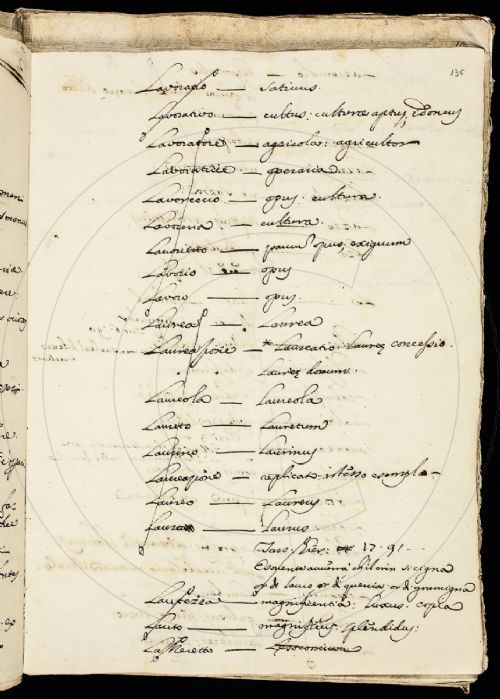 136
Lavorato — Sativus.
Lavorativo — cultus: cultura aptus, idoneus
Lavoratore — agricola: agricultor
Lavoratrice — operaria
Lavoreccio — opus: cultura.
— cultura.
— opus, exiguum
Lavorio — opus
Lavoro — opus.
Laurea — Laurea
Laureazione — Laureatio: Laureę concessio.
Laureę donum.
Laureola — Laureola
Laureto — Lauretum
Laurino — Laurinus
Laureazione — replicato: istesso esempla —
Laureo — Laureus
Lauro — Laurus
Tass. Gier. 17. 91 —
or di lauro or di quercia or di gramigna
Lautezza — magnificentia: luxus: copia
Lauto — magnificus: splendidus: